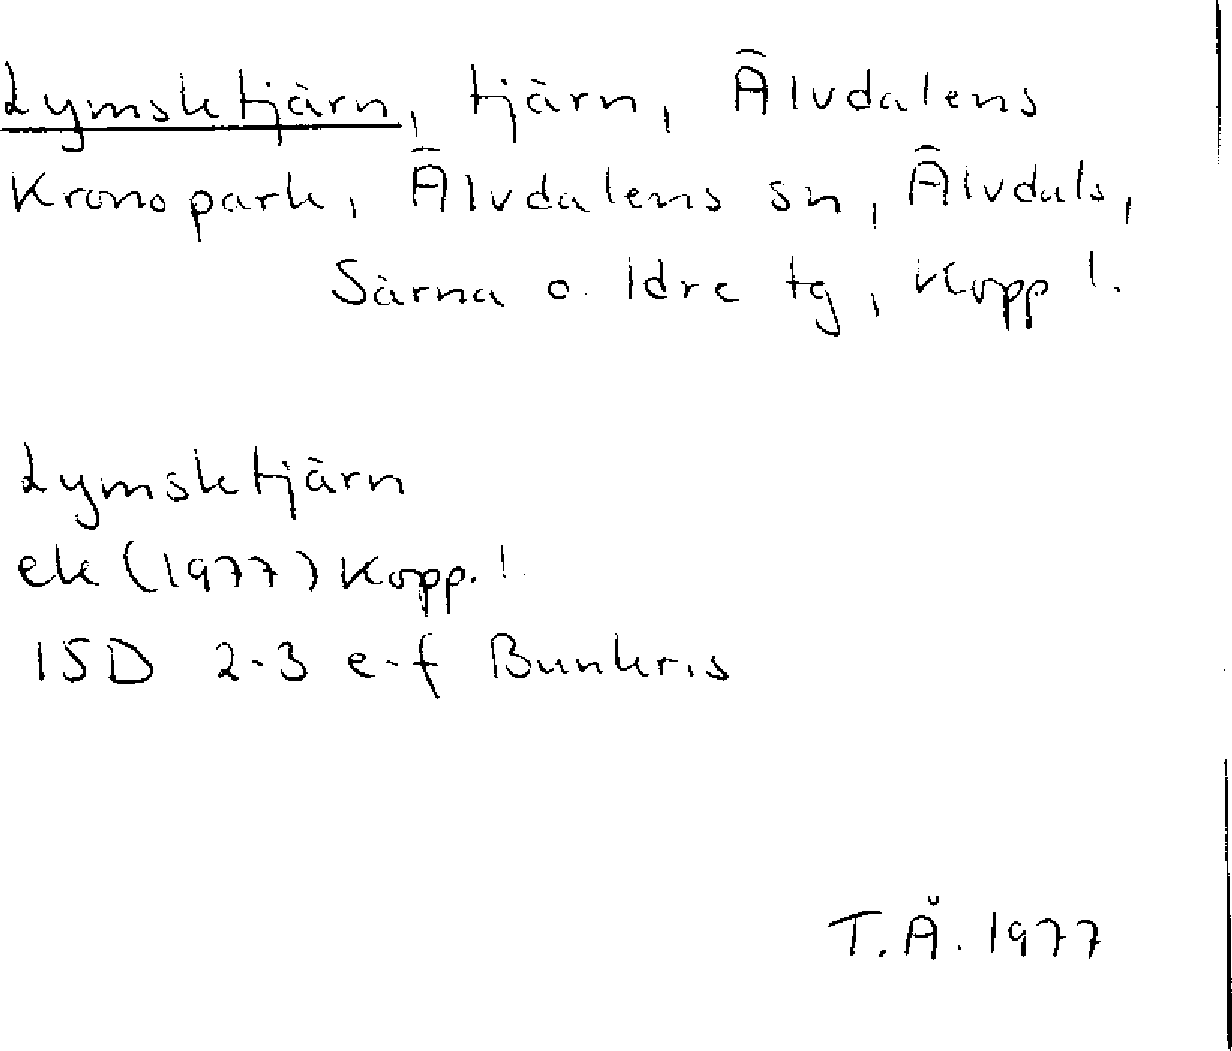 Lymsktjärn, tjärn, Älvdalens
Kronopark, Älvdalens sn, Älvdals,
Särna o. Idre tg, Kopp l.
Lymsktjärn
ek (1977) Kopp. l
15D 2-3 e-f Bunkris
T.Å. 1977